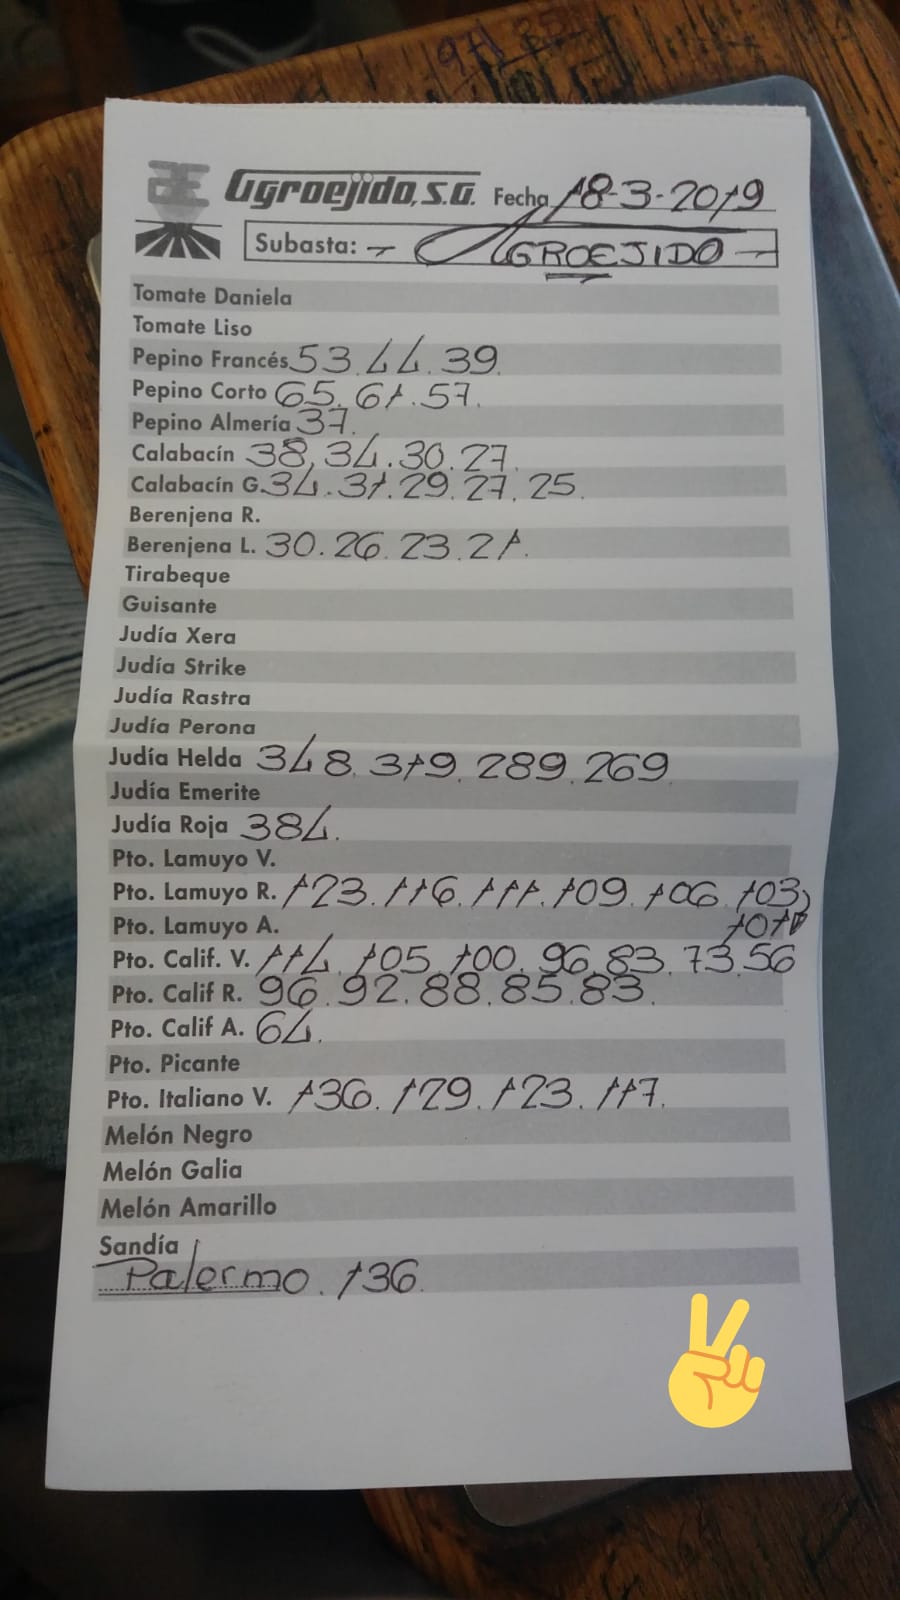 Agroejido, S.A. Fecha 18-3-2019
Subasta: - AGROEJIDO -
Tomate Daniela
Tomate Liso
Pepino Francés 53. 44. 39.
Pepino Corto 65. 61. 57.
Pepino Almería 37.
Calabacín 38. 34. 30. 27.
Calabacín G. 34. 31. 29. 27. 25.
Berenjena R.
Berenjena L. 30. 26. 23. 21.
Tirabeque
Guisante
Judía Xera
Judía Strike
Judía Rastra
Judía Perona
Judía Helda 348. 319. 289. 269
Judía Emerite
Judía Roja 384.
Pto. Lamuyo V.
Pto. Lamuyo R. 123. 116. 111. 109. 106. 103
Pto. Lamuyo A. 101
Pto. Calif. V. 114. 105. 100. 96. 83. 73. 56
Pto. Calif R. 96. 92. 88. 85. 83.
Pto. Calif A. 64.
Pto. Picante
Pto. Italiano V. 136. 129. 123. 117.
Melón Negro
Melón Galia
Melón Amarillo
Sandía
Palermo. 136.